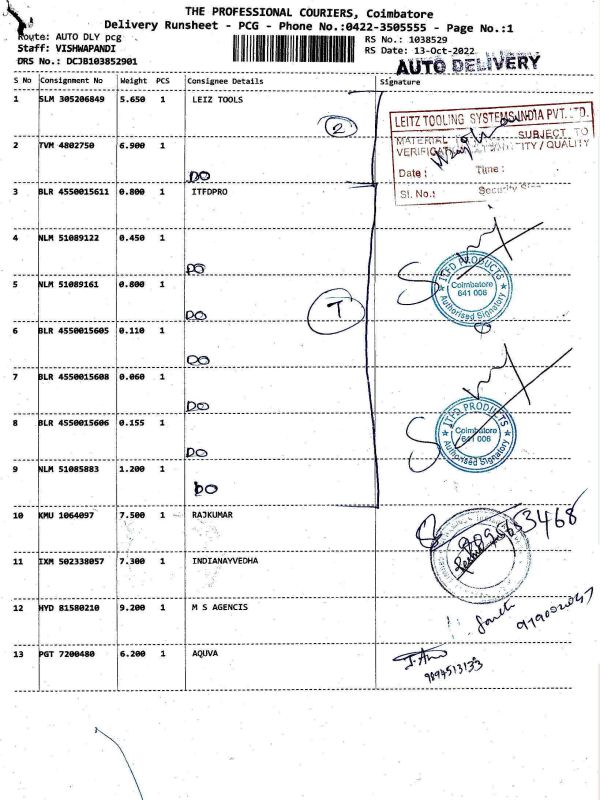 THE PROFESSIONAL COURIERS, Coimbatore
Delivery Runsheet - PCG - Phone No.:0422-3505555 - Page No.:1
Route: AUTO DLY pcg
Staff: VISHWAPANDI
DRS No.: DCJB103852901
RS No.: 1038529
RS Date: 13-Oct-2022
AUTO DELIVERY
S No Consignment No Weight PCS Consignee Details Signature
1 SLM 305206849 5.650 1 LEIZ TOOLS
2
LEITZ TOOLING SYSTEMS INDIA PVT. LTD.
MATERIAL SUBJECT TO
VERIFICATION QUANTITY / QUALITY
Date : Time :
Sl. No.: Security Sign
2 TVM 4802750 6.900 1
DO
3 BLR 4550015611 0.800 1 ITFDPRO
4 NLM 51089122 0.450 1
DO
ITFD PRODUCTS
Coimbatore
641 006
Authorised Signatory
5 NLM 51089161 0.800 1
DO
T
6 BLR 4550015605 0.110 1
DO
7 BLR 4550015608 0.060 1
DO
ITFD PRODUCTS
Coimbatore
641 006
Authorised Signatory
8 BLR 4550015606 0.155 1
DO
9 NLM 51085883 1.200 1
DO
10 KMU 1064097 7.500 1 RAJKUMAR
9895653468
11 IXM 502338057 7.300 1 INDIANAYVEDHA
12 HYD 81580210 9.200 1 M S AGENCIS
13 PGT 7200480 6.200 1 AQUVA
9894513133